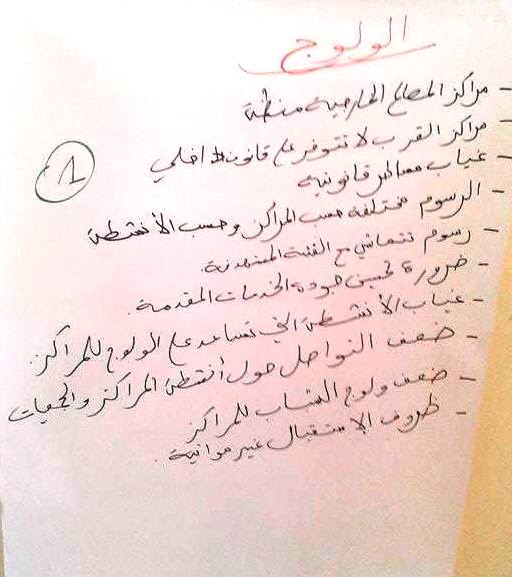 الولوج
- مراكز المصالح الخارجية منظمة
- مراكز القرب لا تتوفر على قانون داخلي
1
- غياب مساطر قانونية
- الرسوم مختلفة حسب المراكز وحسب الأنشطة
- رسوم تتماشى مع الفئة المستهدفة
- ضرورة تحسين جودة الخدمات المقدمة.
- غياب الأنشطة التي تساعد على الولوج للمراكز.
- ضعف التواصل حول أنشطة المراكز والجمعيات
- ضعف ولوج الشباب للمراكز
- ظروف الإستقبال غير مواتية.